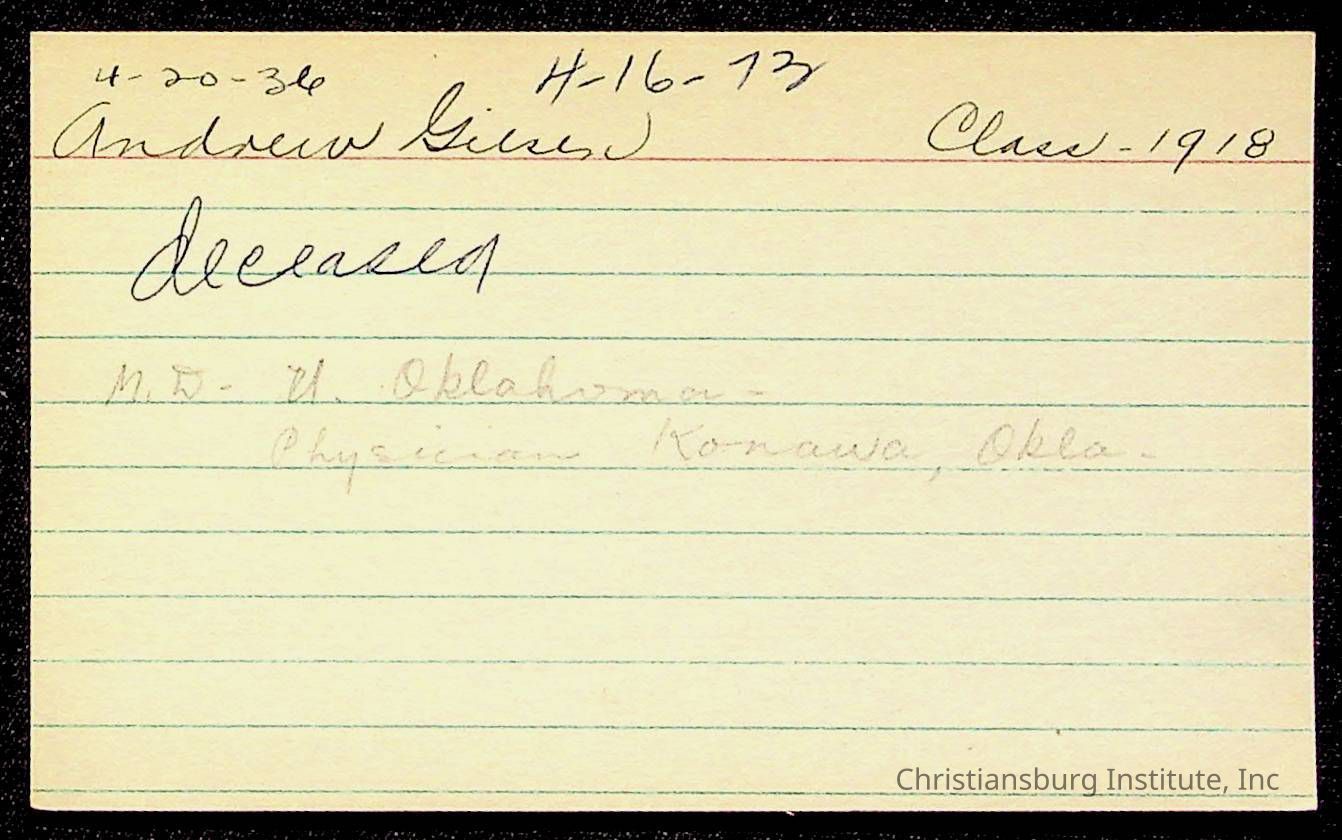 4-20-36 4-16-73
Andrew Gilsen Class - 1918
deceased
M.D- U. Oklahoma-
Physician Konawa, Okla-
Christiansburg Institute, Inc